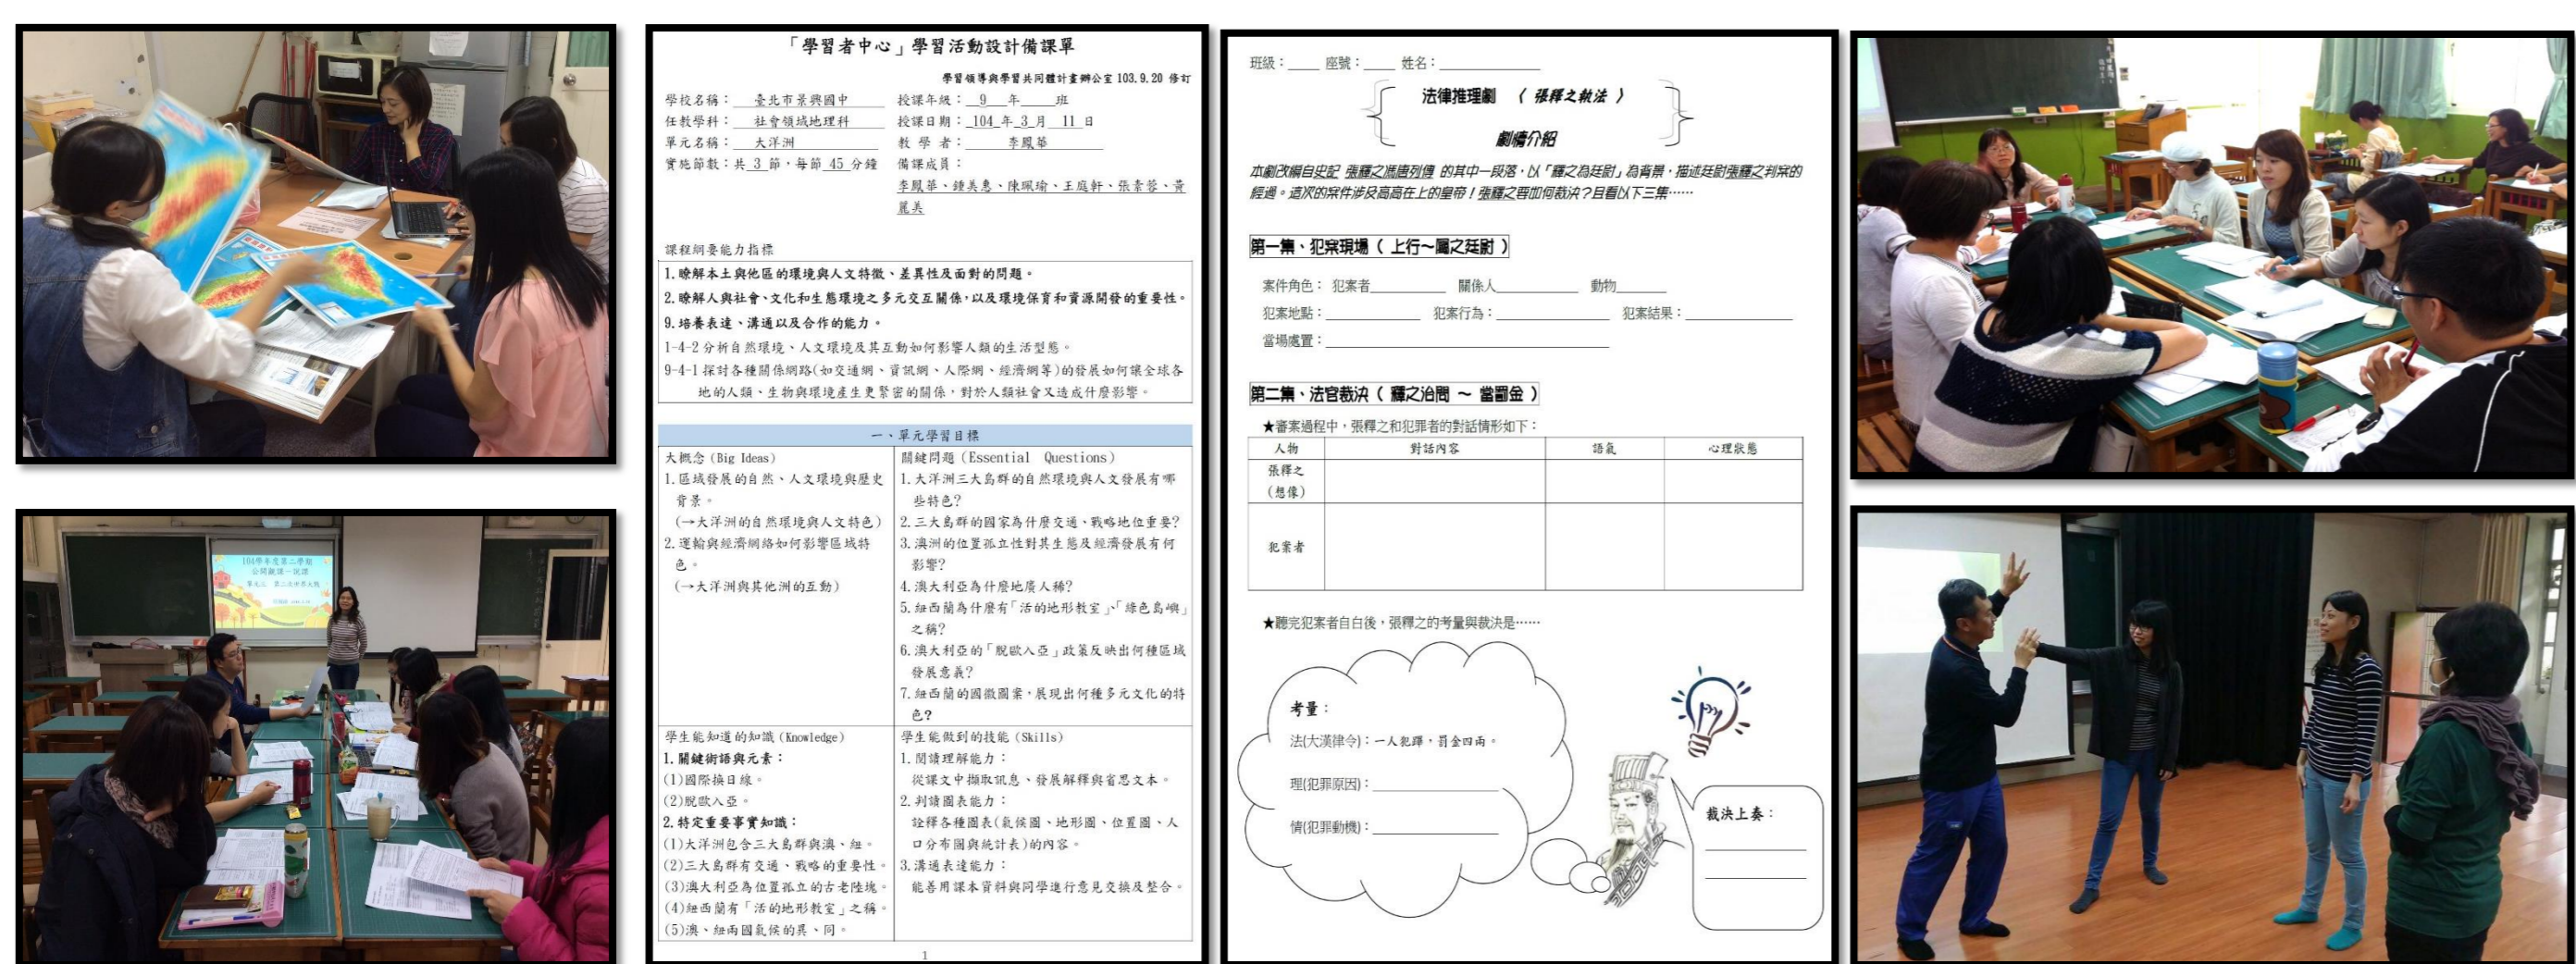 「學習者中心」學習活動設計備課單
學習領導與學習共同體計畫辦公室 103.9.20 修訂
學校名稱： 臺北市景興國中 授課年級：9 年 班
任教學科： 社會領域地理科 授課日期：104 年 3 月 11 日
單元名稱： 大洋洲 教 學 者： 李鳳華
實施節數：共 3 節，每節 45 分鐘 備課成員：
李鳳華、鍾美惠、陳珮瑜、王庭軒、張素蓉、黃
麗美
課程綱要能力指標
1.瞭解本土與他區的環境與人文特徵、差異性及面對的問題。
2.瞭解人與社會、文化和生態環境之多元交互關係，以及環境保育和資源開發的重要性。
9.培養表達、溝通以及合作的能力。
1-4-2 分析自然環境、人文環境及其互動如何影響人類的生活型態。
9-4-1 探討各種關係網路(如交通網、資訊網、人際網、經濟網等)的發展如何讓全球各
地的人類、生物與環境產生更緊密的關係，對於人類社會又造成什麼影響。
一、單元學習目標
大概念(Big Ideas)
1.區域發展的自然、人文環境與歷史
背景。
(→大洋洲的自然環境與人文特色)
2.運輸與經濟網絡如何影響區域特
色。
(→大洋洲與其他洲的互動)
關鍵問題(Essential Questions)
1.大洋洲三大島群的自然環境與人文發展有哪
些特色?
2.三大島群的國家為什麼交通、戰略地位重要?
3.澳洲的位置孤立性對其生態及經濟發展有何
影響?
4.澳大利亞為什麼地廣人稀?
5.紐西蘭為什麼有「活的地形教室」、「綠色島嶼」
之稱?
6.澳大利亞的「脫歐入亞」政策反映出何種區域
發展意義?
7.紐西蘭的國徽圖案，展現出何種多元文化的特
色?
學生能知道的知識(Knowledge)
1.關鍵術語與元素：
(1)國際換日線。
(2)脫歐入亞。
2.特定重要事實知識：
(1)大洋洲包含三大島群與澳、紐。
(2)三大島群有交通、戰略的重要性。
(3)澳大利亞為位置孤立的古老陸塊。
(4)紐西蘭有「活的地形教室」之稱。
(5)澳、紐兩國氣候的異、同。
學生能做到的技能(Skills)
1.閱讀理解能力：
從課文中擷取訊息、發展解釋與省思文本。
2.判讀圖表能力：
詮釋各種圖表(氣候圖、地形圖、位置圖、人
口分布圖與統計表)的內容。
3.溝通表達能力：
能善用課本資料與同學進行意見交換及整合。
1
班級： 座號： 姓名：
法律推理劇 〈 張釋之執法 〉
劇情介紹
本劇改編自史記 張釋之馮唐列傳 的其中一段落，以「釋之為廷尉」為背景，描述廷尉張釋之判案的
經過。這次的案件涉及高高在上的皇帝！張釋之要如何裁決？且看以下三集……
第一集、犯案現場（ 上行～屬之廷尉 ）
案件角色： 犯案者 關係人 動物
犯案地點： 犯案行為： 犯案結果：
當場處置：
第二集、法官裁決（ 釋之治問 ～ 當罰金 ）
★審案過程中，張釋之和犯罪者的對話情形如下：
人物 對話內容 語氣 心理狀態
張釋之
(想像)
犯案者
★聽完犯案者自白後，張釋之的考量與裁決是……
考量：
法(大漢律令)：一人犯蹕，罰金四兩。
理(犯罪原因)：
情(犯罪動機)：
裁決上奏：
104學年度第二學期
公開觀課－說課
單元三 第二次世界大戰